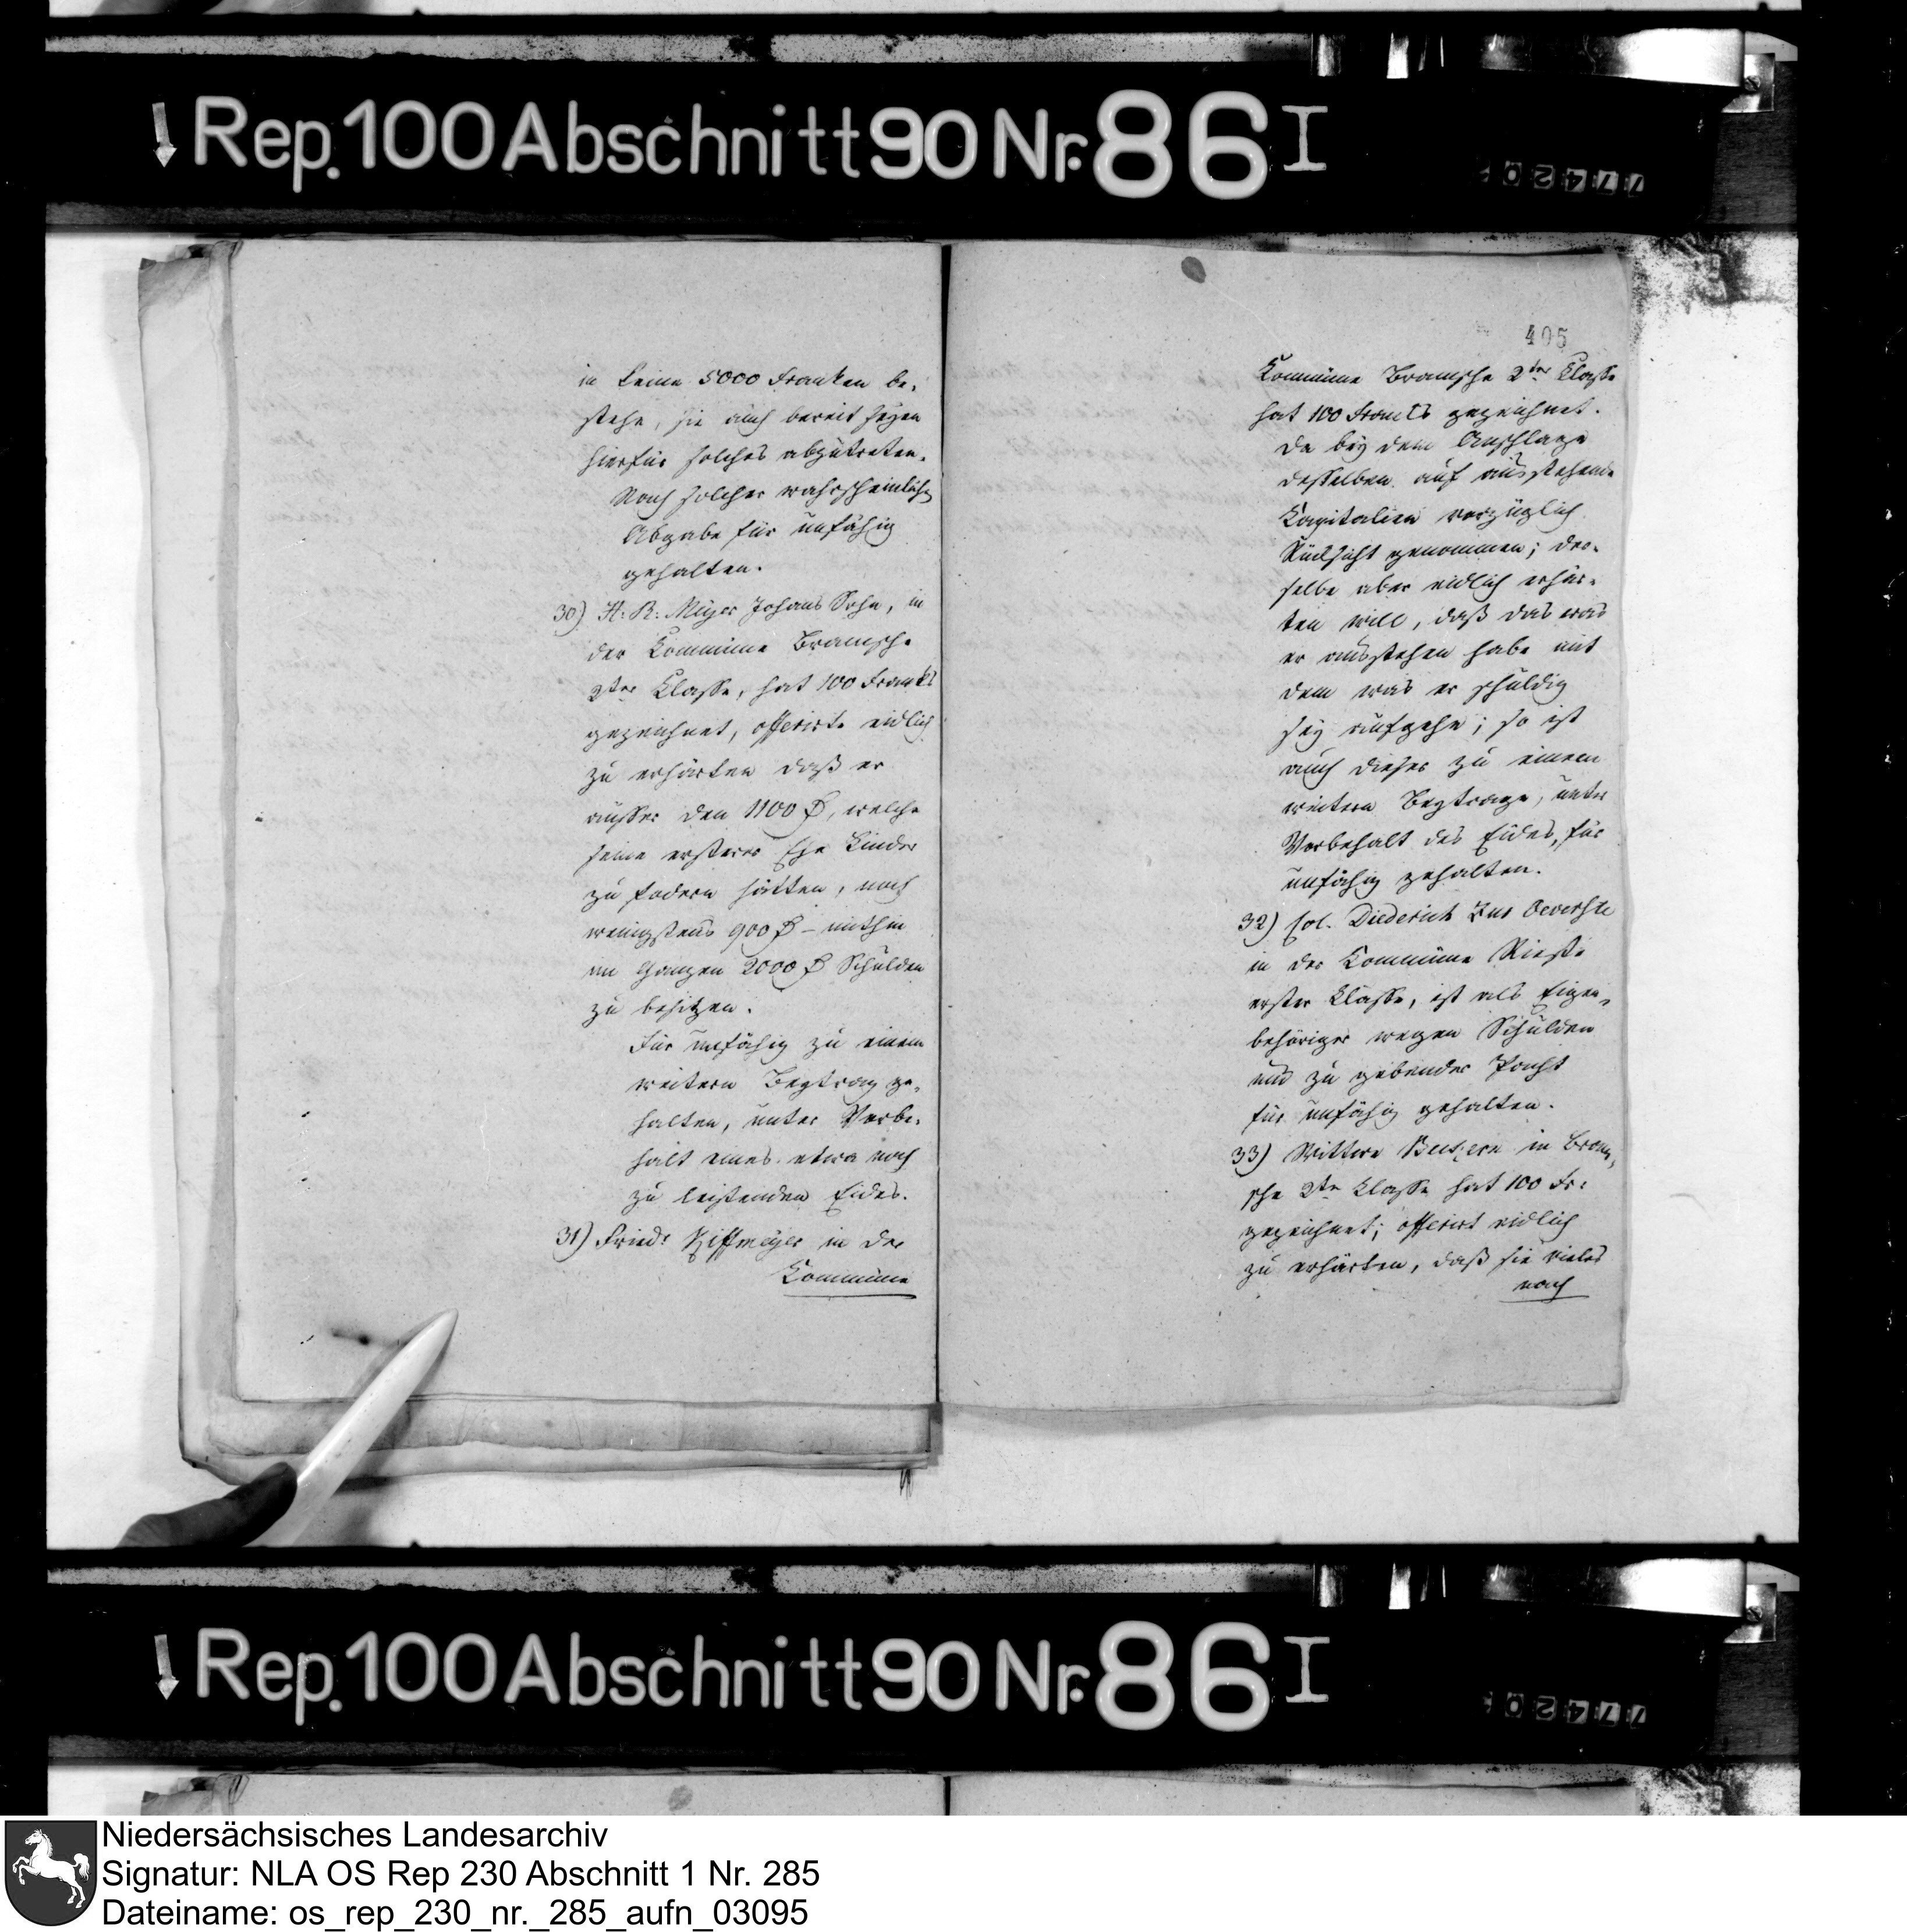 Rep. 100 Abschnitt 90 Nr. 86 I
77420
in keine 5000 Franken be-
stehe, sie auch bereit seyen
hierfür solches abzutreten.
Nach solcher wahrscheinlichen
Abgabe für unfähig
gehalten.
30) H: R: Meyer Johans Sohn, in
der Commüne Bramsche
2ter Classe, hat 100 Franks
gezeichnet, offerirte eidlich
zu erhärten daß er
ausser den 1100 , welche
seine ersterer Ehe Kinder
zu fodern hätten, noch
wenigstens 900 - mithin
im Ganzen 2000 Schulden
zu besitzen.
Für unfähig zu einem
weitern Beytrag ge-
halten, unter Vorbe-
halt eines etwa noch
zu leistenden Eides.
31) Fried: in der
Commüne
405
Commüne Bramsche 2ter Classe
hat 100 Francs gezeichnet.
Da bey dem Anschlage
desselben auf ausstehende
Kapitalien vorzüglich
Rücksicht genommen; der-
selbe aber eidlich erhär-
ten will, daß das was
er ausstehen habe mit
dem was er schuldig
sey aufgehe; so ist
auch dieser zu einem
weitern Beytrage, unter
Vorbehalt des Eides, für
unfähig gehalten.
32) Col. Diederich Zur Oeverste
in der Commüne Rieste
erster Classe, ist als Eigen-
behöriger wegen Schulden
und zu gebender Pacht
für unfähig gehalten.
33) Wittwe in Bram-
sche 2ter Classe hat 100 Fr:
gezeichnet; offerirt eidlich
zu erhärten, daß sie vieles
noch
Rep. 100 Abschnitt 90 Nr. 86 I
77420
Niedersächsisches Landesarchiv
Signatur: NLA OS Rep 230 Abschnitt 1 Nr. 285
Dateiname: os_rep_230_nr._285_aufn_03095